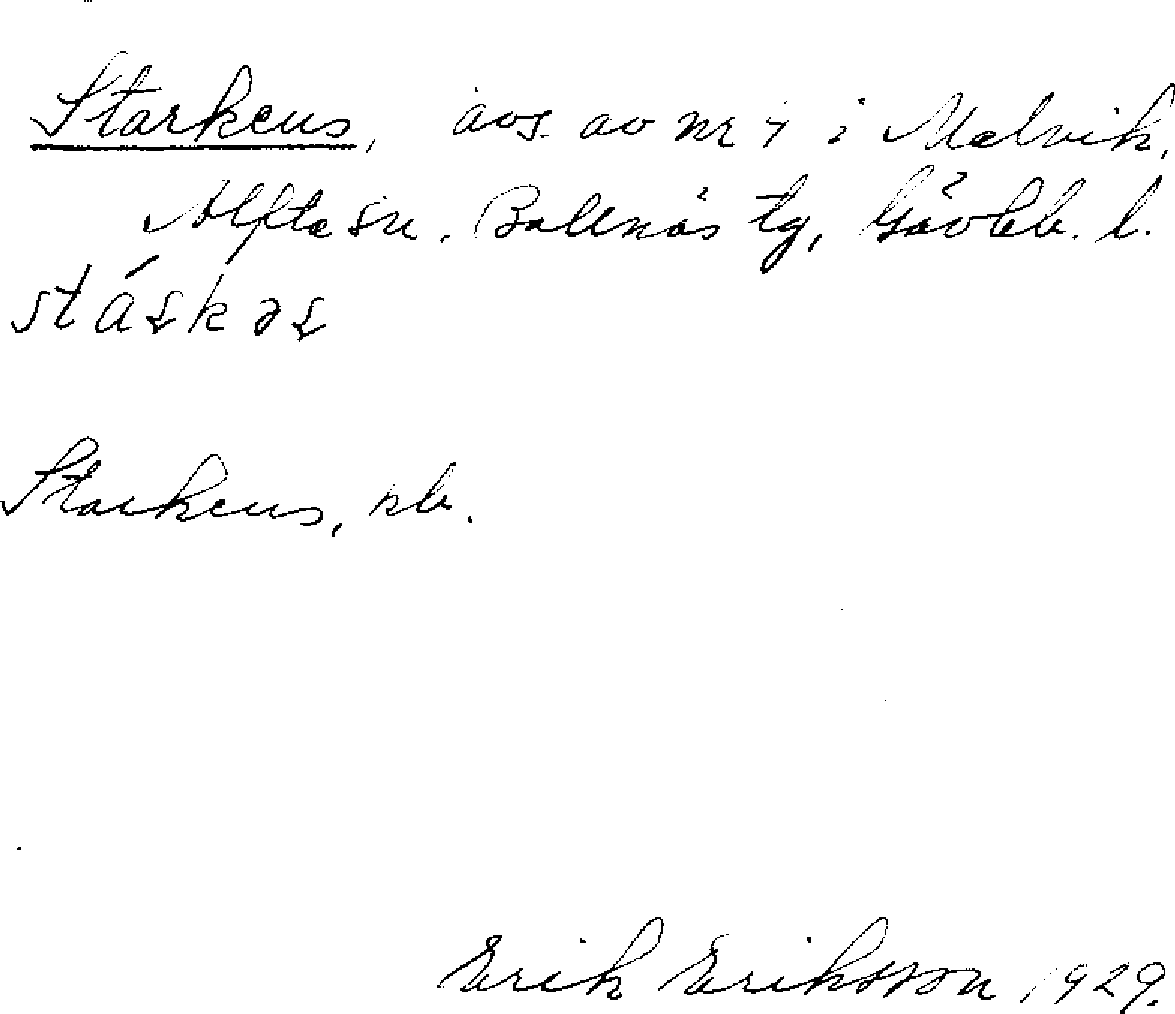 Starkens, avs. av nr 4 i Malvik,
Alfta sn. Bollnäs tg, Gävleb. l.
Starkens, nb.
Erik Eriksson 1929.